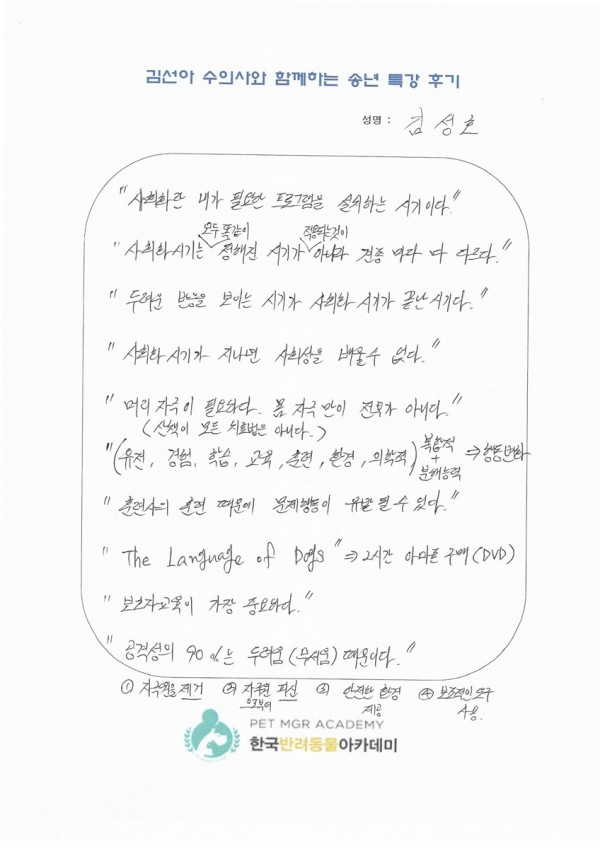 김선아 수의사와 함께하는 송년 특강 후기
성명 : 김성호
"사회화란 내가 필요한 프로그램을 설치하는 시기이다."
모두 똑같이 적용되는것이
"사회화시기는 정해진 시기가 아니라 견종 마다 다 다르다."
"두려운 반응을 보이는 시기가 사회화 시기가 끝난 시기다."
"사회화시기가 지나면 사회성을 배울수 없다."
"머리 자극이 필요하다. 몸 자극만이 전부가 아니다."
(산책이 모든 치료법은 아니다.)
"(유전, 경험, 학습, 교육, 훈련, 환경, 의학적) 복합적 + 분배능력 ⇒ 행동변화
"훈련사의 훈련 때문에 문제행동이 유발 될 수 있다."
"The Language of Dogs" ⇒ 2시간 아마존 구매(DVD)
"보호자교육이 가장 중요하다."
"공격성의 90%는 두려움(무서움) 때문이다."
① 자극원을 제거 ② 자극원으로부터 피신 ③ 안전한 환경 제공 ④ 보조적인 도구 사용.
PET MGR ACADEMY
한국반려동물아카데미